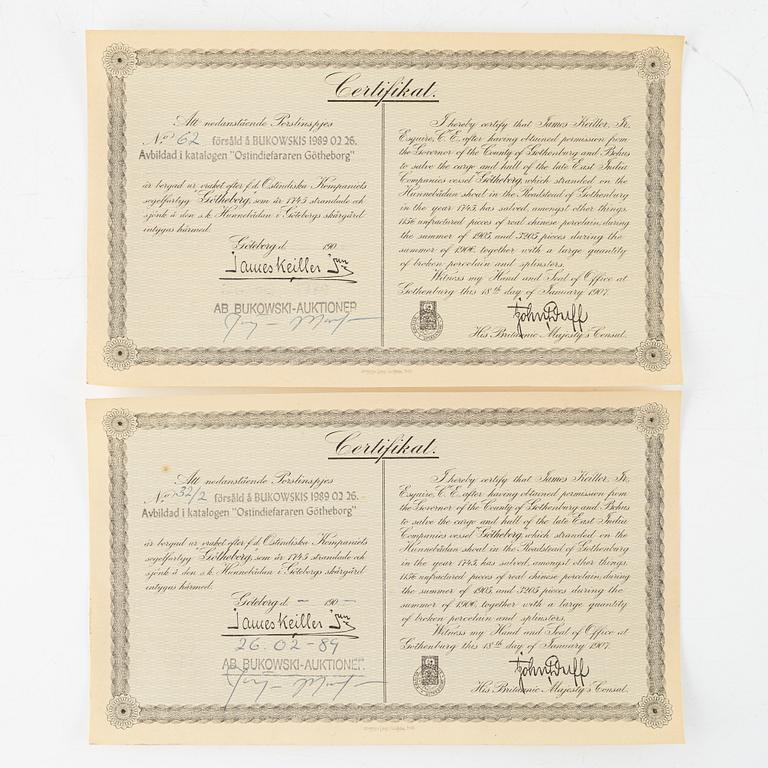 Certifikat.
Att nedanstående Porslinspjes
No 62 försåld å BUKOWSKIS 1989 02 26.
Avbildad i katalogen "Ostindiefararen Götheborg"
är bergad ur vraket efter f.d. Ostindiska Kompaniets
segelfartyg "Götheborg", som år 1745 strandade och
sjönk å den s.k. Hunnebådan i Göteborgs skärgård
intygas härmed.
Göteborg d. 190
James Keiller Jun
AB BUKOWSKI-AUKTIONER
I hereby certify that James Keiller, Jr,
Esquire, C.E. after having obtained permission from
the Governor of the County of Gothenburg and Bohus
to salve the cargo and hull of the late East India
Companies vessel Götheborg, which stranded on the
Hunnebådan shoal in the Roadstead of Gothenburg
in the year 1745, has salved, amongst other things,
1156 unfractured pieces of real chinese porcelain, during
the summer of 1905, and 3205 pieces during the
summer of 1906, together with a large quantity
of broken porcelain and splinters.
Witness my Hand and Seal of Office at
Gothenburg this 18th day of January 1907.
John Duff
His Britannic Majesty's Consul.
Certifikat.
Att nedanstående Porslinspjes
No 32/2 försåld å BUKOWSKIS 1989 02 26.
Avbildad i katalogen "Ostindiefararen Götheborg"
är bergad ur vraket efter f.d. Ostindiska Kompaniets
segelfartyg "Götheborg", som år 1745 strandade och
sjönk å den s.k. Hunnebådan i Göteborgs skärgård
intygas härmed.
Göteborg d. — 190 —
James Keiller Jun
26.02-89
AB BUKOWSKI-AUKTIONER
I hereby certify that James Keiller, Jr,
Esquire, C.E. after having obtained permission from
the Governor of the County of Gothenburg and Bohus
to salve the cargo and hull of the late East India
Companies vessel Götheborg, which stranded on the
Hunnebådan shoal in the Roadstead of Gothenburg
in the year 1745, has salved, amongst other things,
1156 unfractured pieces of real chinese porcelain, during
the summer of 1905, and 3205 pieces during the
summer of 1906, together with a large quantity
of broken porcelain and splinters.
Witness my Hand and Seal of Office at
Gothenburg this 18th day of January 1907.
John Duff
His Britannic Majesty's Consul.